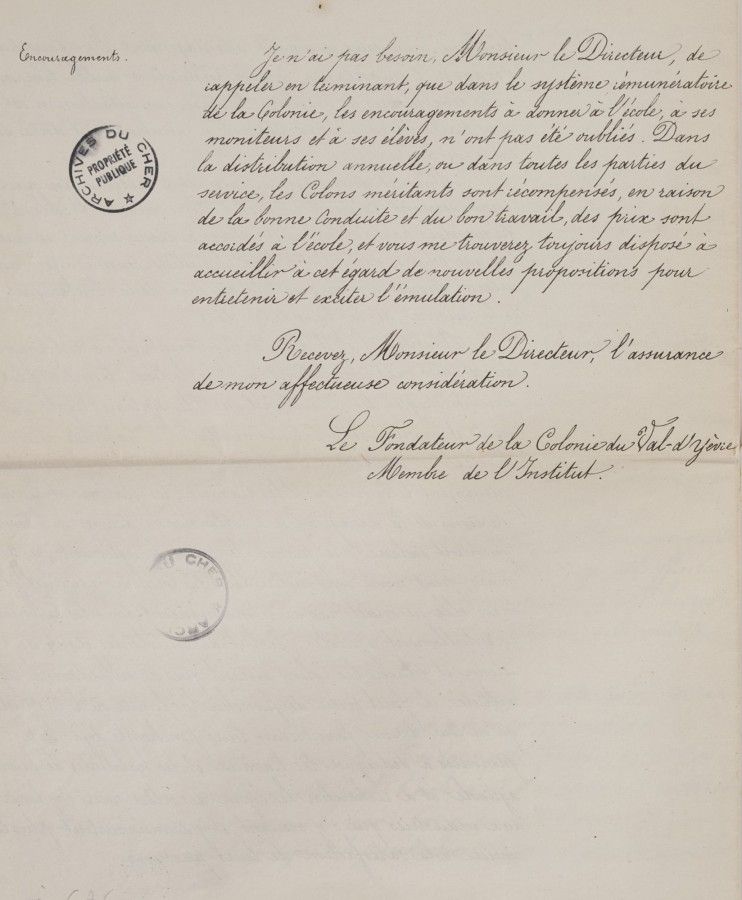 Encouragements.
Je n'ai pas besoin, Monsieur le Directeur, de
rappeler en terminant, que dans le système rémunératoire
de la Colonie, les encouragements à donner à l'école, à ses
moniteurs et à ses élèves, n'ont pas été oubliés. Dans
la distribution annuelle, ou dans toutes les parties du
service, les Colons méritants sont récompensés, en raison
de la bonne conduite et du bon travail, des prix sont
accordés à l'école, et vous me trouverez toujours disposé à
accueillir à cet égard de nouvelles propositions pour
entretenir et exciter l'émulation.
ARCHIVES DU CHER
PROPRIÉTÉ
PUBLIQUE
Recevez, Monsieur le Directeur, l'assurance
de mon affectueuse considération.
Le Fondateur de la Colonie du Val-d'Yèvre
Membre de l'Institut.
DU CHER
ARCH